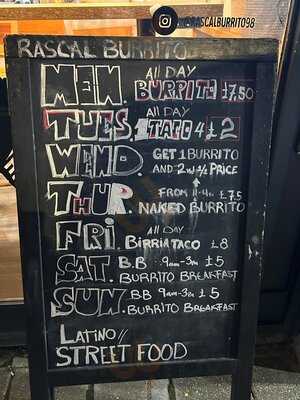 @RASCALBURRITO98
RASCAL BURRITO
MEN. All DAY
BURRITO £7,50
TUES All DAY
1 TACO 4 £2
WEND. GET 1 BURRITO
AND 2nd ½ PRICE
THUR. FROM 11-4p £7.5
NAKED BURRITO
FRI. All DAY
BIRRIA TACO £8
SAT. B.B 9am-3pm £5
BURRITO BREAKFAST
SUN. BB 9am-3pm £5
BURRITO BREAKFAST
LATINO //
STREET FOOD